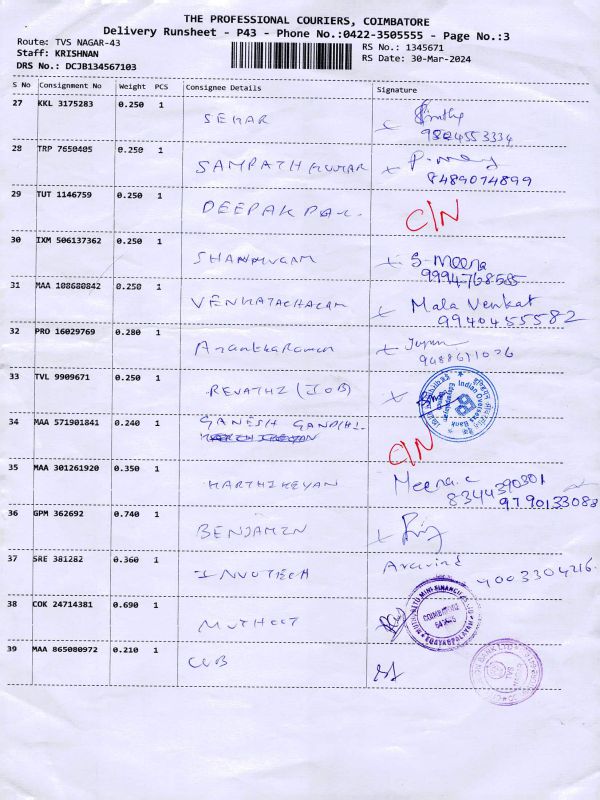 THE PROFESSIONAL COURIERS, COIMBATORE
Delivery Runsheet - P43 - Phone No.:0422-3505555 - Page No.:3
Route: TVS NAGAR-43
RS No.: 1345671
Staff: KRISHNAN
RS Date: 30-Mar-2024
DRS No.: DCJB134567103
S No Consignment No Weight PCS Consignee Details Signature
27 KKL 3175283 0.250 1 SEKAR
28 TRP 7650405 0.250 1 SAMPATH KUMAR
8489074899
29 TUT 1146759 0.250 1 DEEPAK PAL. C/N
30 IXM 506137362 0.250 1 SHANMUGAM S-Meena
9994768585
31 MAA 108680842 0.250 1 VENKATACHALAM Mala Venkat
9940455582
32 PRO 16029769 0.280 1
33 TVL 9909671 0.250 1 REVATHI (IOB)
Indian Overseas Bank
34 MAA 571901841 0.240 1 GANESH GANDHI C/N
35 MAA 301261920 0.350 1 KARTHIKEYAN Meena.c
8344390301
9790133088
36 GPM 362692 0.740 1 BENJAMIN
37 SRE 381282 0.360 1 INVOTECH Aravind
38 COK 24714381 0.690 1 MUTHOOT
COIMBATORE
39 MAA 865080972 0.210 1 CUB